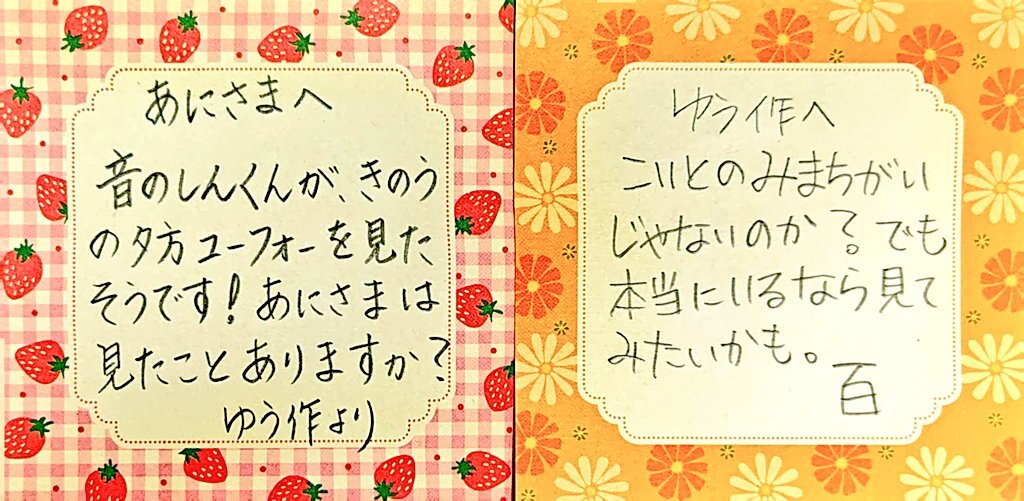 あにさまへ
音のしんくんが、きのう
の夕方ユーフォーを見た
そうです!あにさまは
見たことありますか?
ゆう作より
ゆう作へ
こいとのみまちがい
じゃないのか?でも
本当にいるなら見て
みたいかも。
百